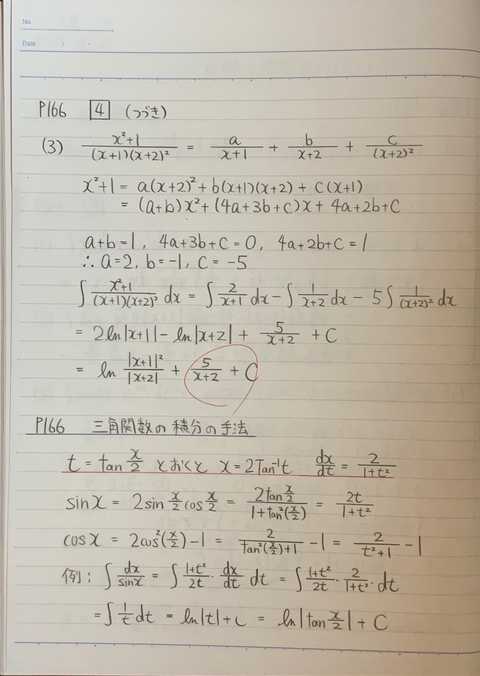 No.
Date
P166 4 (つづき)
(3) (x²+1)/((x+1)(x+2)²) = a/(x+1) + b/(x+2) + c/(x+2)²
x²+1 = a(x+2)² + b(x+1)(x+2) + c(x+1)
= (a+b)x² + (4a+3b+c)x + 4a+2b+c
a+b=1, 4a+3b+c=0, 4a+2b+c=1
∴ a=2, b=-1, c=-5
∫ (x²+1)/((x+1)(x+2)²) dx = ∫ 2/(x+1) dx - ∫ 1/(x+2) dx - 5∫ 1/(x+2)² dx
= 2ln|x+1| - ln|x+2| + 5/(x+2) + C
= ln |x+1|²/|x+2| + 5/(x+2) + C
P166 三角関数の積分の手法
t = tan x/2 とおくと x = 2Tan⁻¹t dx/dt = 2/(1+t²)
sinx = 2sin x/2 cos x/2 = 2tan x/2 / (1+tan²(x/2)) = 2t/(1+t²)
cosx = 2cos²(x/2) - 1 = 2/(tan²(x/2)+1) - 1 = 2/(t²+1) - 1
例: ∫ dx/sinx = ∫ (1+t²)/2t · dx/dt dt = ∫ (1+t²)/2t · 2/(1+t²) · dt
= ∫ 1/t dt = ln|t| + c = ln|tan x/2| + C